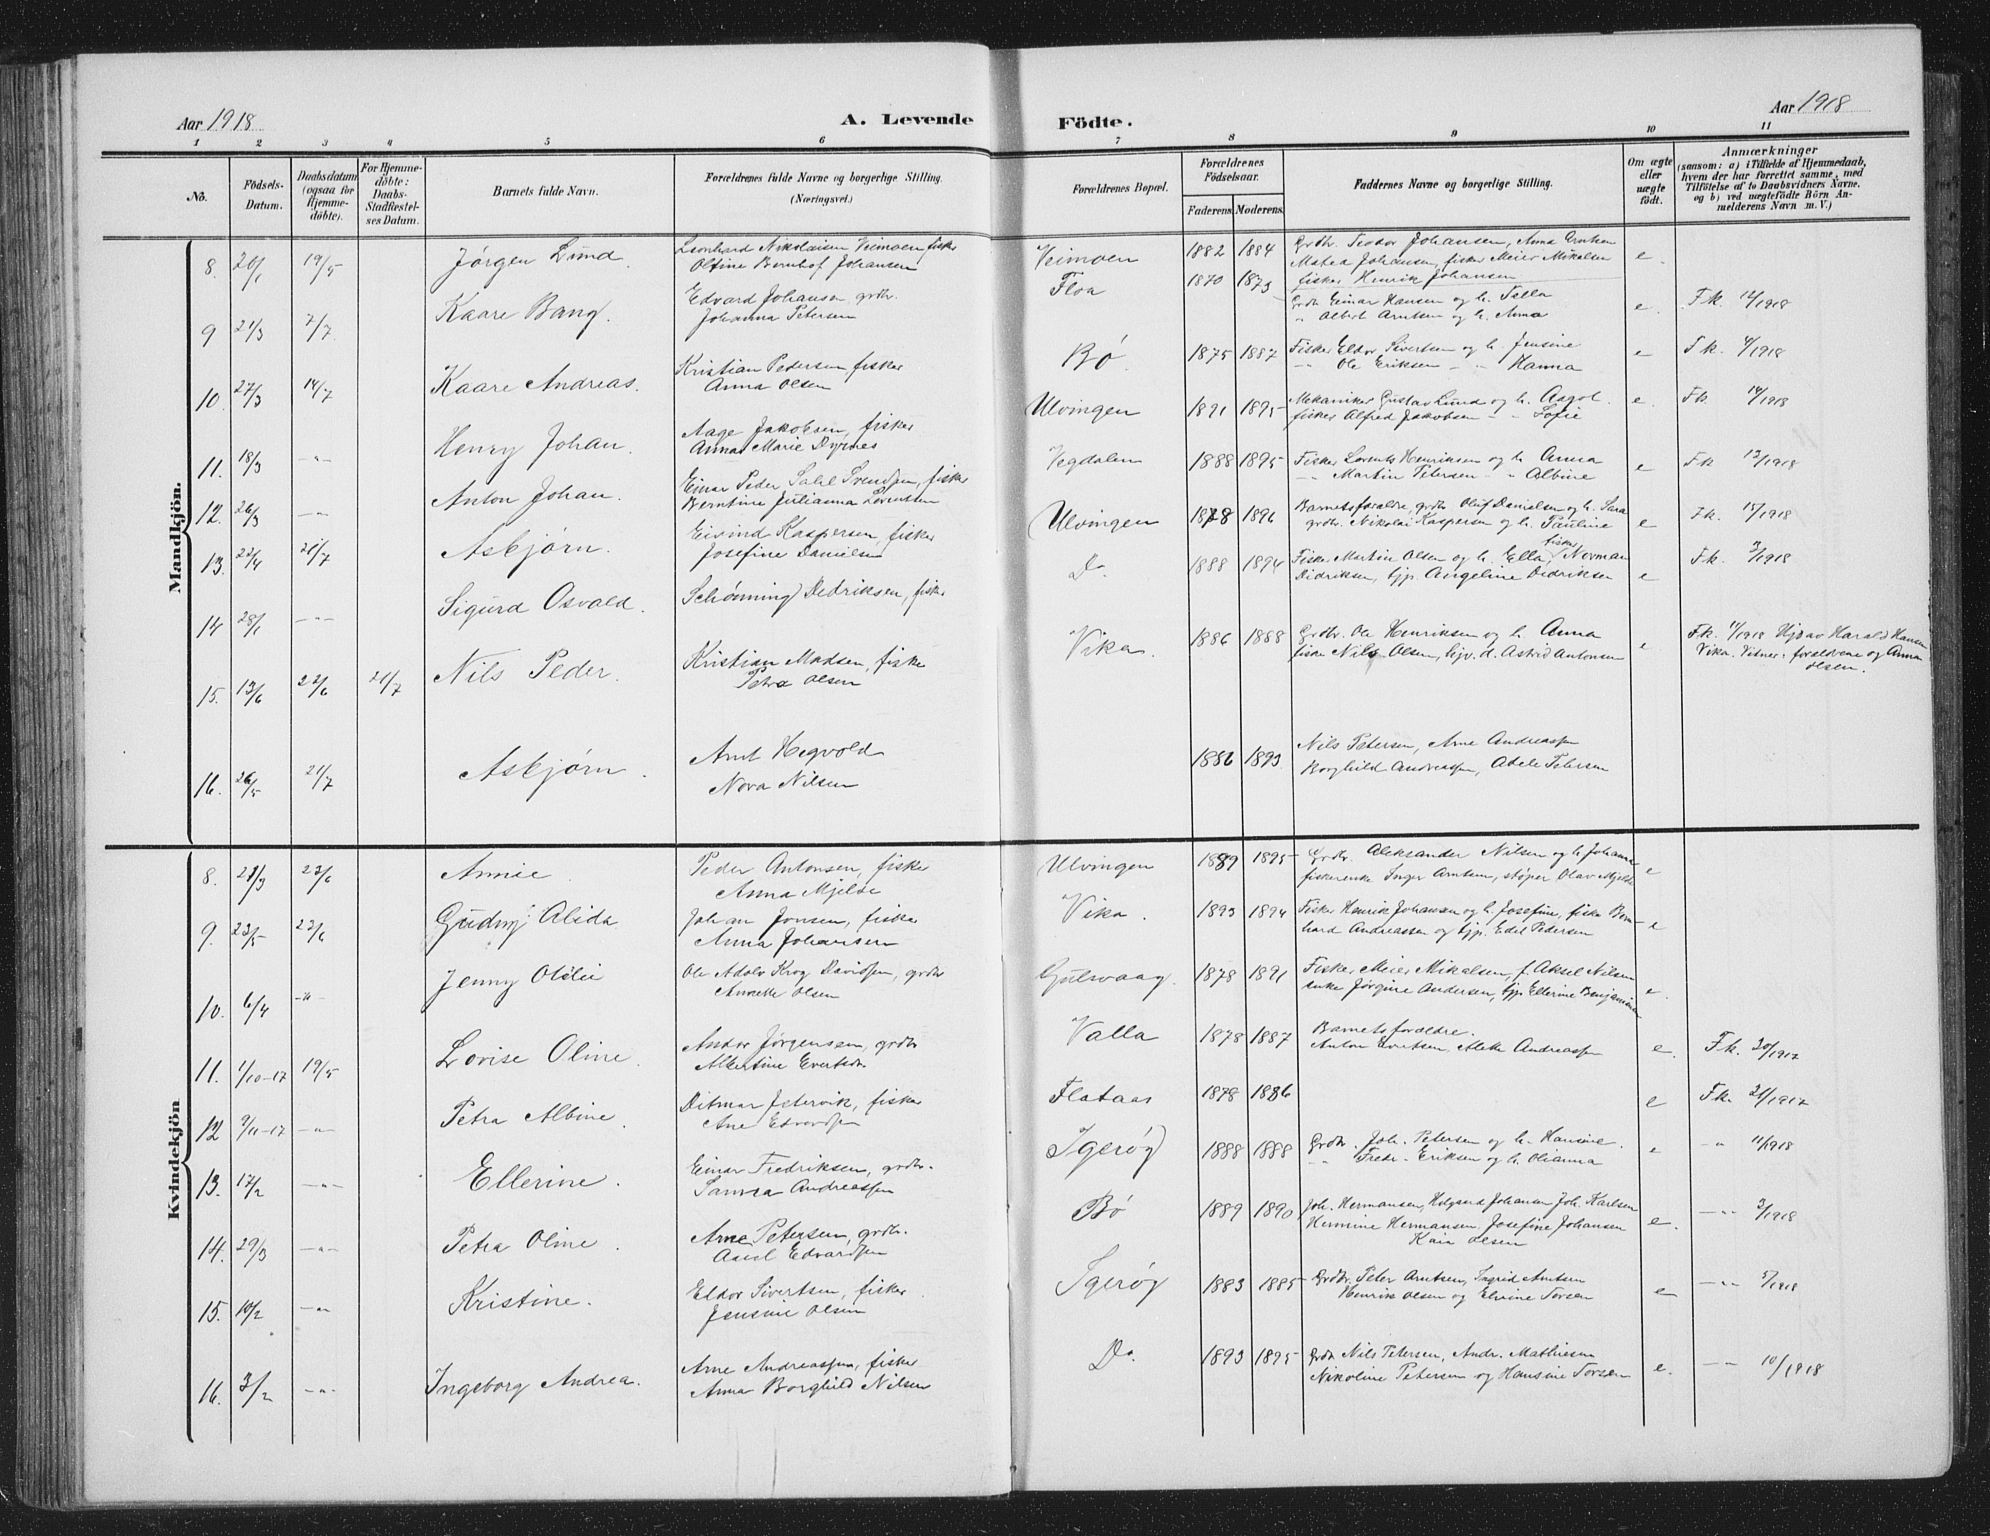 Aar 1918
A. Levende
Födte.
Aar 1918
1 2 3 4 5 6 7 8 9 10 11
No.
Födsels-
Datum.
Daabsdatum
(ogsaa for
Hjemme-
döbte).
For Hjemme-
döbte:
Daabs-
Stadfæstel-
ses Datum.
Barnets fulde Navn.
Forældrenes fulde Navne og borgerlige Stilling.
(Næringsvei.)
Forældrenes Bopæl.
Forældrenes
Födselsaar.
Faderens Moderens
Faddernes Navne og borgerlige Stilling.
Om ægte
eller
uægte
födt.
Anmærkninger
(saasom: a) i Tilfælde af Hjemmedaab,
hvem der har forrettet samme, med
Tilföielse af to Daabsvidners Navne,
og b) ved uægtefödte Börn An-
melderens Navn m. V.)
Mandkjön.
8. 20/1 19/5 Jørgen Lund
Leonhard Nikolaisen Veimoen fisker
Olfine Bernhof Johansen
Veimoen 1882 1884
Grdbr. Teodor Johansen, Anna Arntsen
Johansen, fisker Meier Mikalsen
fisker Henrik Johansen
e.
9 21/3 7/7 Kaare Bang.
Edvard Johansen grdbr.
Johanna Petersen
Floa 1870 1873
Grdb Einar Hansen og h.
" Albert Arntsen og h. Anna
e. F.k. 12/1918
10. 27/3 14/7 Kaare Andreas.
Kristian Pedersen fisker
Anna Olsen
Bø. 1875 1887
Fisker Eldor Sivertsen og h. Jensine
-"- Ole Eriksen - " - Hanna
e F.k. 4/1918
11. 18/3 -"- Henry Johan
Aage Jakobsen, fisker
Anna Marie Dyrnes
Ulvingen 1891 1895
Mekaniker Gustav Lund og h. Aagot.
fisker Alfred Jakobsen - " - Sofie
e. Fk. 14/1918
12. 26/3 -"- Anton Johan.
Einar Peder Salil Svendsen, fisker
Berntine Julianna Lorentsen
Vegdalen 1888 1895
Fisker Lorents Henriksen og h. Anna
-"- Martin Petersen - " Albine
e Fk 13/1918
13. 22/4 21/7 Asbjørn.
Eivind Kaspersen, fisker
Josefine Danielsen
Ulvingen 1878 1896
Barnets forældre, grdbr Oluf Danielsen og h. Sara
grdbr. Nikolai Kaspersen og h. Pauline
e Fk. 15/1918
14 28/1 -"- Sigurd Osvald.
Schønning Dedriksen, fisker
Do. 1888 1894
Fisker Martin Olsen og h. Ella, fisker Norman
Didriksen, Angeline Didriksen
e F.k. 3/1918
15. 13/6 22/6 21/7 Nils Peder.
Kristian Madsen, fisker
Petra Olsen
Vika. 1886 1888
Grdbr. Ole Henriksen og h. Anna
fisker Nils Olsen, Astrid Antonsen
e F.k. 11/1918 Hjd av Harald Hansen
Vika. Vitner: forældrene og Anna
Olsen.
16. 26/5 21/7 Asbjørn.
Arnt Hegvold
Nora Nilsen
1886 1893
Nils Petersen, Arne Andreassen
Borghild Andreassen, Adele Petersen
Kvindekjön
8. 21/3 23/6 Annie.
Peder Antonsen, fisker
Anna Mjelde
Ulvingen 1889 1895
Grdbr. Aleksander Nilsen og h. Johanna
fiskerenke Inger Arntsen, støper Olav Mjelde
e
9. 23/5 23/6 Gudny Alida
Johan Jonsen, fisker
Anna Johansen
Vika. 1893 1894
Fisker Henrik Johansen og h. Josefine, fisker Bern-
hard Andreassen og Edel Pedersen
e
10. 6/4 -"- Jenny Otelie
Ole Adolv Krog Davidsen, grdbr
Annette Olsen
Gulsvaag. 1878 1891
Fisker Meier Mikalsen, f. Aksel Nilsen
enke Jørgine Andersen, Ellerine Benjaminsen
e.
11. 1/10-17 19/5 Lovise Oline
Andor Jørgensen, grdbr
Albertine Evertsen
Valla 1878 1887
Barnets forældre.
Anton Evertsen, Andreassen
e. F.k. 30/1917
12 9/11-17 -"- Petra Albine.
Ditmar fisker
Ane Edvardsen
Flataas 1878 1886
e F.k. 21/1917
13. 17/2 -"- Ellerine.
Einar Fredriksen, grdbr.
Sanna Andreassen
Igerøy 1888 1888
Grdbr. Joh. Petersen og h. Hansine.
" Fredr. Eriksen og h. Olianna
e -"- 11/1918
14. 29/3 -"- Petra Oline.
Arne Petersen, grdbr.
Edvardsen
Bø 1889 1890
Joh. Hermansen, Helgerd Johansen Joh. Karlsen
Hermine Hermansen, Josefine Johansen
Kaia Olsen
e. -"- 2/1918
15. 10/2 -"- Kristine.
Eldor Sivertsen, fisker
Jensine Olsen
Igerøy 1883 1885
Grdbr. Peter Arntsen, Ingrid Arntsen
Henrik Olsen og Elvine Torsen
e -"- 5/1918
16. 3/2 -"- Ingeborg Andrea.
Arne Andreassen, fisker
Anna Borghild Nilsen
Do. 1893 1895
Grdb Nils Petersen, Andr. Mathiesen
Nikoline Petersen og Hansine Torsen
e. -"- 10/1918